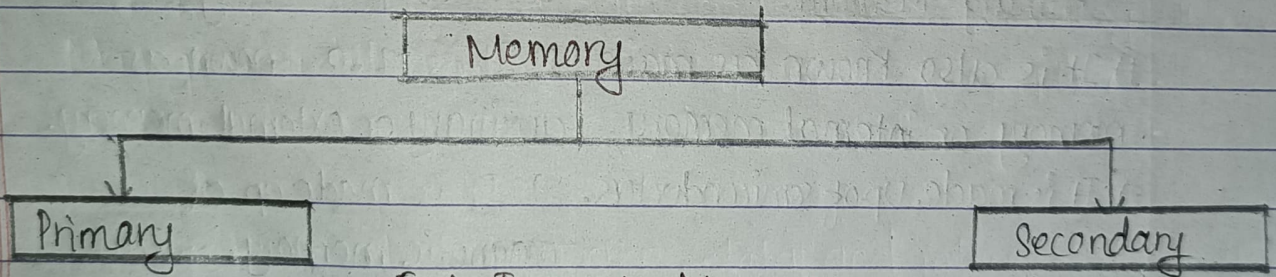 Memory
Primary
Secondary